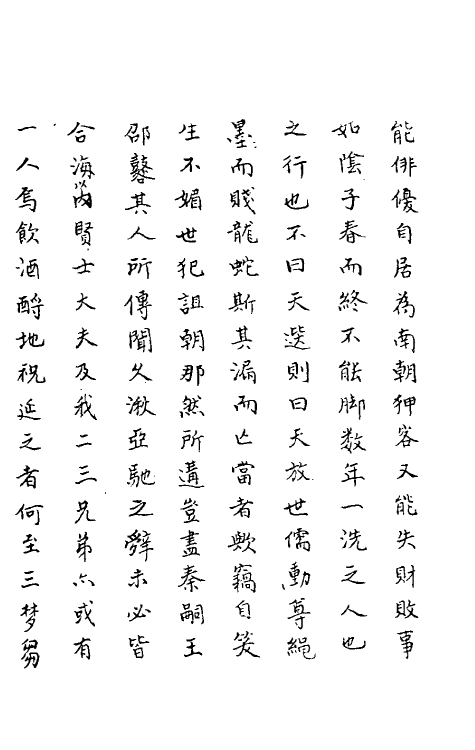 能俳優自居為南朝狎客又能失財敗事
如陰子春而終不能脚數年一洗之人也
之行也不曰天選則曰天放世儒動尊繩
墨而賤龍蛇斯其漏而亡當者歟竊自笑
生不媚世犯詛朝那然所遘豈盡秦嗣王
邵鼛其人所傳聞久湫亞馳之辭未必皆
合海內賢士大夫及我二三兄弟亦或有
一人焉飲酒酹地祝延之者何至三梦芻